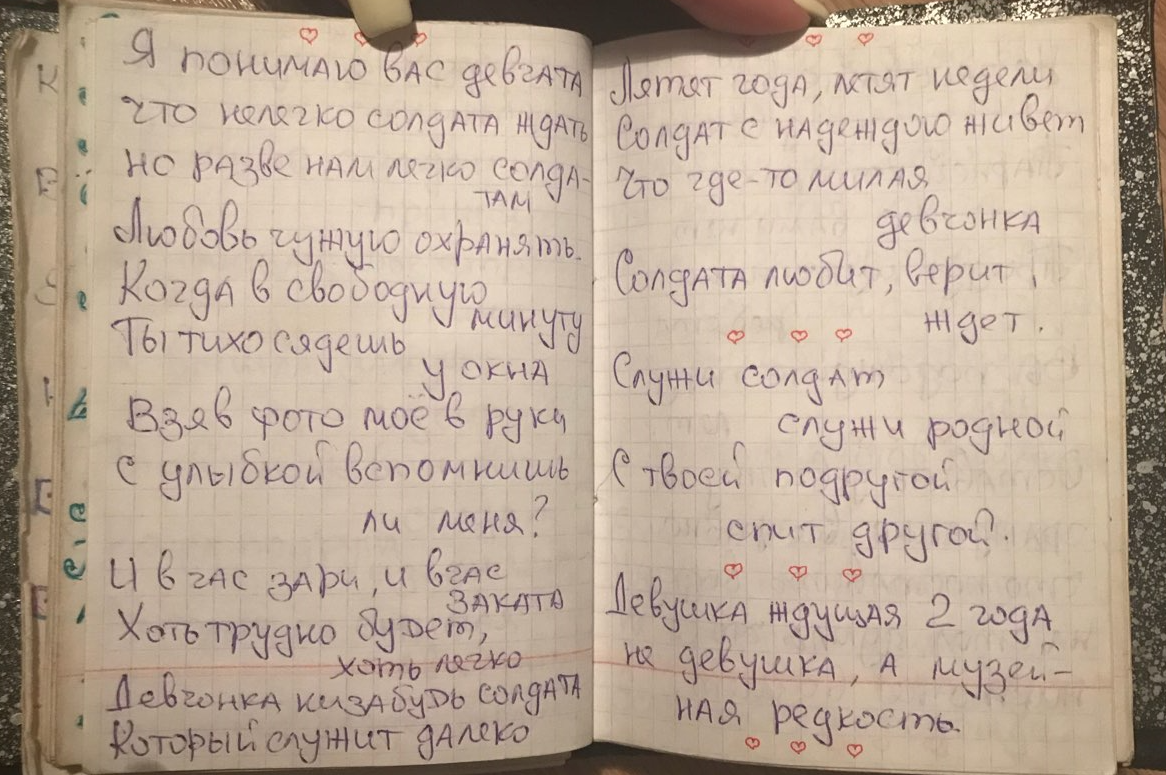 Я понимаю вас девчата
Что нелегко солдата ждать
Но разве нам легко солда-
там
Любовь чужую охранять.
Когда в свободную
минуту
Ты тихо сядешь
у окна
Взяв фото моё в руки
С улыбкой вспомнишь
ли меня?
И в час зари, и в час
заката
Хоть трудно будет,
хоть легко
Девчонка не забудь солдата
Который служит далеко
Летят года, летят недели
Солдат с надеждою живет
Что где-то милая
девчонка
Солдата любит, верит,
ждет.
Служи солдат
служи родной
С твоей подругой
спит другой?.
Девушка ждущая 2 года
не девушка, а музей-
ная редкость.